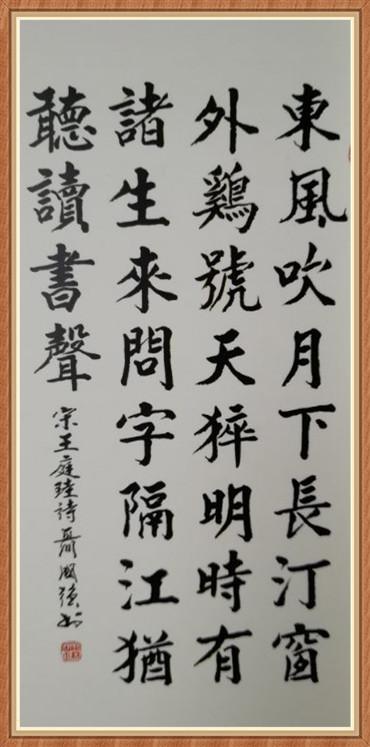 東風吹月下長汀窗
外鷄號天猝明時有
諸生來問字隔江猶
聽讀書聲
宗王庭珪詩聶國强书